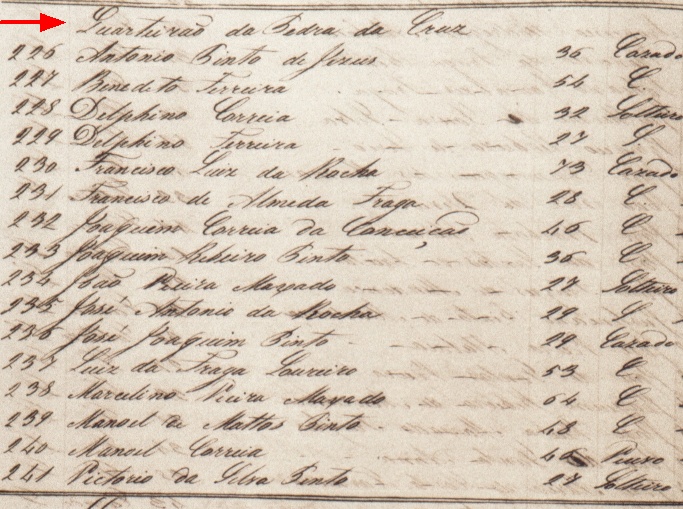 Quarteirão da Pedra da Cruz
226 Antonio Pinto de Jezus 36 Cazado
227 Benedito Ferreira 54 C.
228 Delphino Correia 32 Solteiro
229 Delphino Ferreira 27 S.
230 Francisco Luiz da Rocha 73 Cazado
231 Francisco de Almeda Fraga 28 C.
232 Joaquim Correia da Conceicão 46 C
233 Joaquim Ribeiro Pinto 36 C
234 João Vieira Maxado 27 Solteiro
235 José Antonio da Rocha 29 S
236 José Joaquim Pinto 29 Cazado
237 Luiz da Fraga Loureiro 53 C
238 Marcelino Vieira Maxado 64 C
239 Manoel de Mattos Pinto 48 C
240 Manoel Correia
241 Victorio da Silva Pinto 27 Solteiro